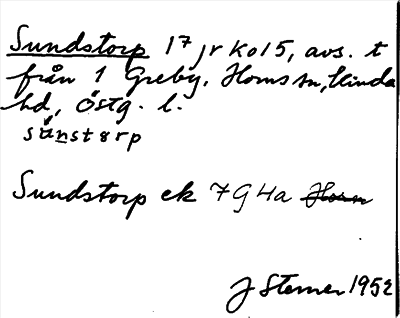 Sundstorp 1⁷ jr ko15, avs. t
från 1 Greby, Horns sn, Kinda
hd, Östg. l.
sůnstørp
Sundstorp ek 7G4a Horn
J Sterner 1952